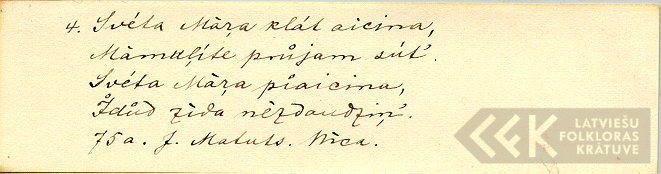 4. Svéta Māŗa klát aicina,
Māmuļíte průjam sút'.
Svéta Māŗa pîaicina,
Îdůd zîda nêzdaudziņ'.
75a. J. Matuts. Nīca.
LATVIEŠU
FOLKLORAS
KRĀTUVE